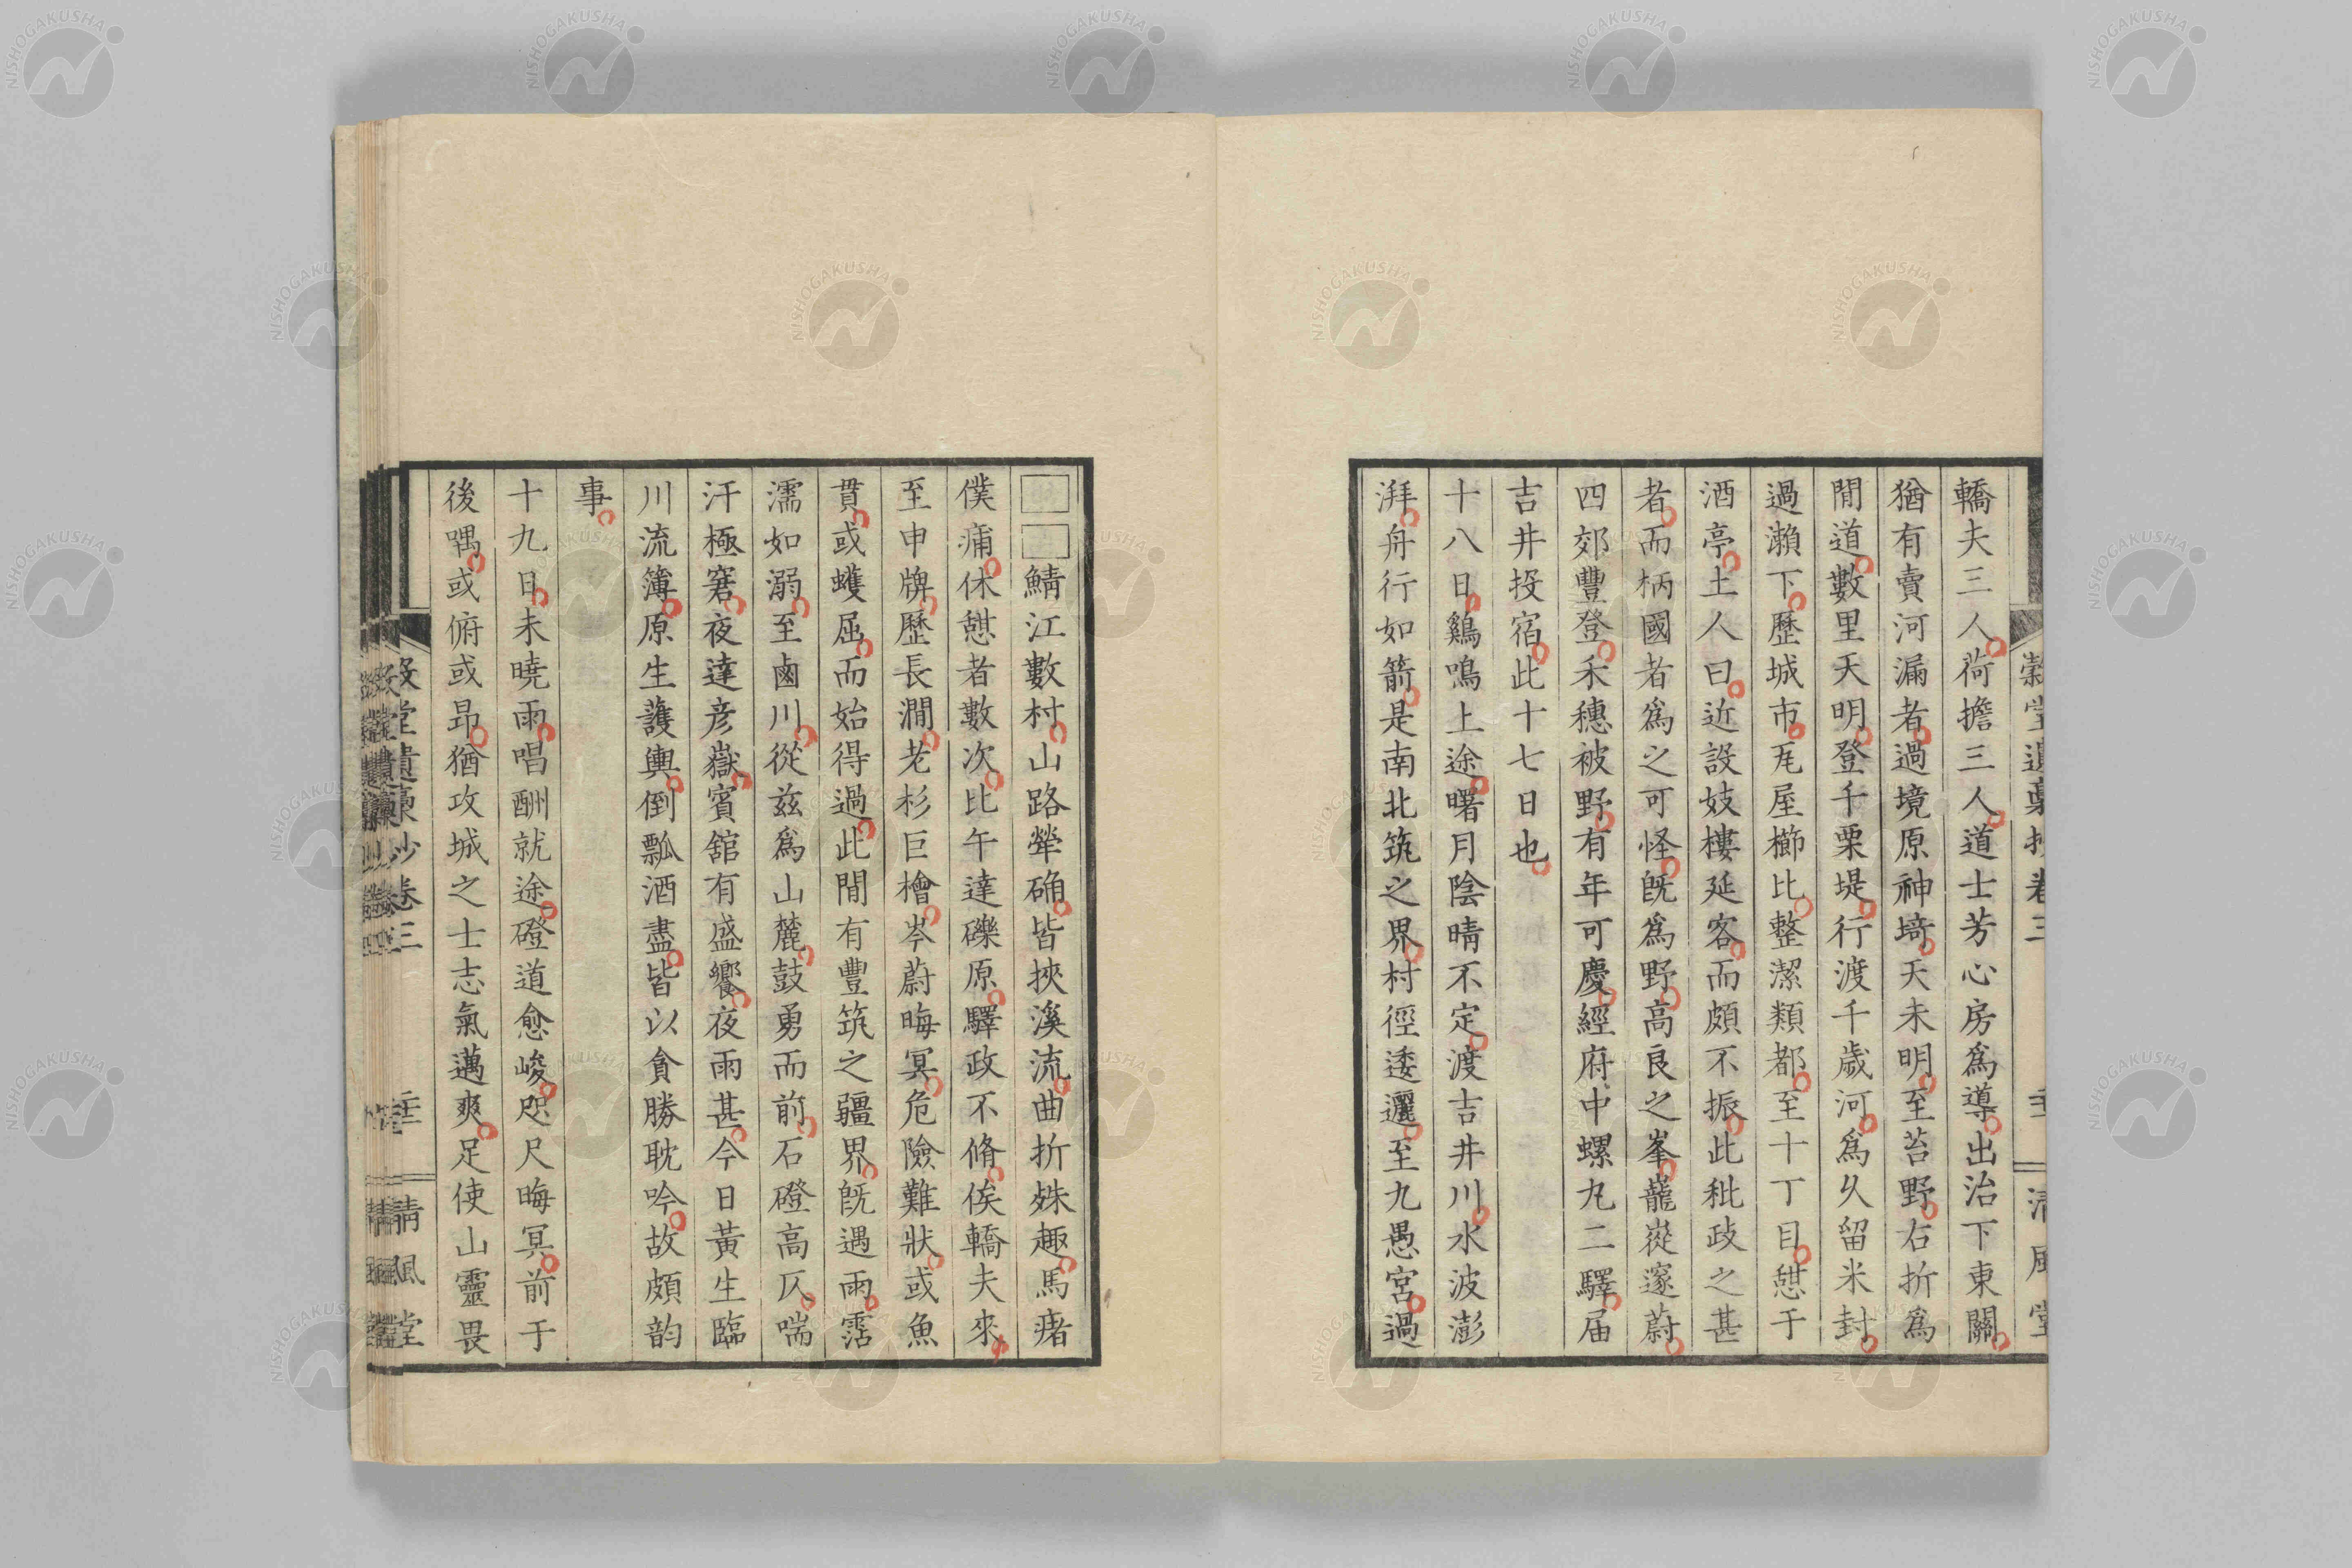 轎夫三人荷擔三人道士芳心房爲導出治下東關
猶有賣河漏者過境原神埼天未明至苔野右折爲
閒道數里天明登千栗堤行渡千歲河爲久留米封
過瀨下歷城市瓦屋櫛比整潔類都至十丁目憇于
酒亭土人曰近設妓樓延客而頗不振此秕政之甚
者而柄國者爲之可怪旣爲野高良之峯巃嵸邃蔚
四郊豐登禾穗被野有年可慶經府中螺丸二驛届
吉井投宿此十七日也
十八日鷄鳴上途曙月陰晴不定渡吉井川水波澎
湃舟行如箭是南北筑之界村徑逶邐至九愚宮過
鯖江數村山路犖确皆挾溪流曲折殊趣馬瘏
僕痡休憇者數次比午達礫原驛政不脩俟轎夫來
至申牌歷長澗老杉巨檜岑蔚晦冥危險難狀或魚
貫或蠖屈而始得過此閒有豐筑之疆界旣遇雨霑
濡如溺至鹵川從茲爲山麓鼓勇而前石磴高仄喘
汗極窘夜達彦嶽賓舘有盛饗夜雨甚今日黃生臨
川流簿原生護輿倒瓢酒盡皆以貪勝耽吟故頗韵
事
十九日未曉雨唱酬就途磴道愈峻咫尺晦冥前于
後喁或俯或昂猶攻城之士志氣邁爽足使山靈畏
堂遺稾抄卷三
清風堂